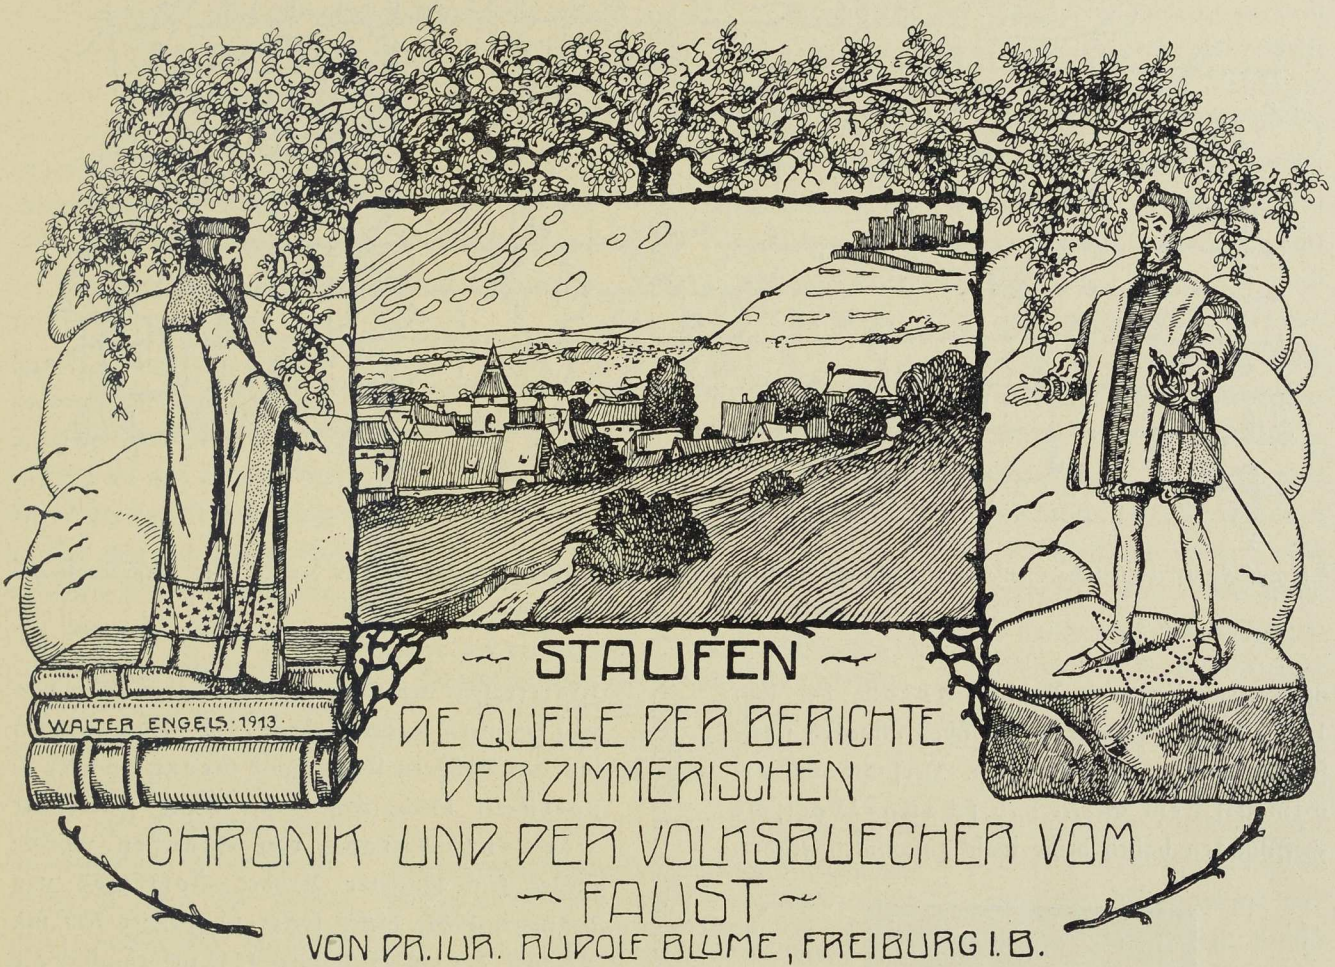 WALTER ENGELS·1913·
STAUFEN
DIE QUELLE DER BERICHTE
DER ZIMMERISCHEN
CHRONIK UND DER VOLKSBUECHER VOM
FAUST
VON DR.IUR. RUDOLF BLUME, FREIBURG I.B.